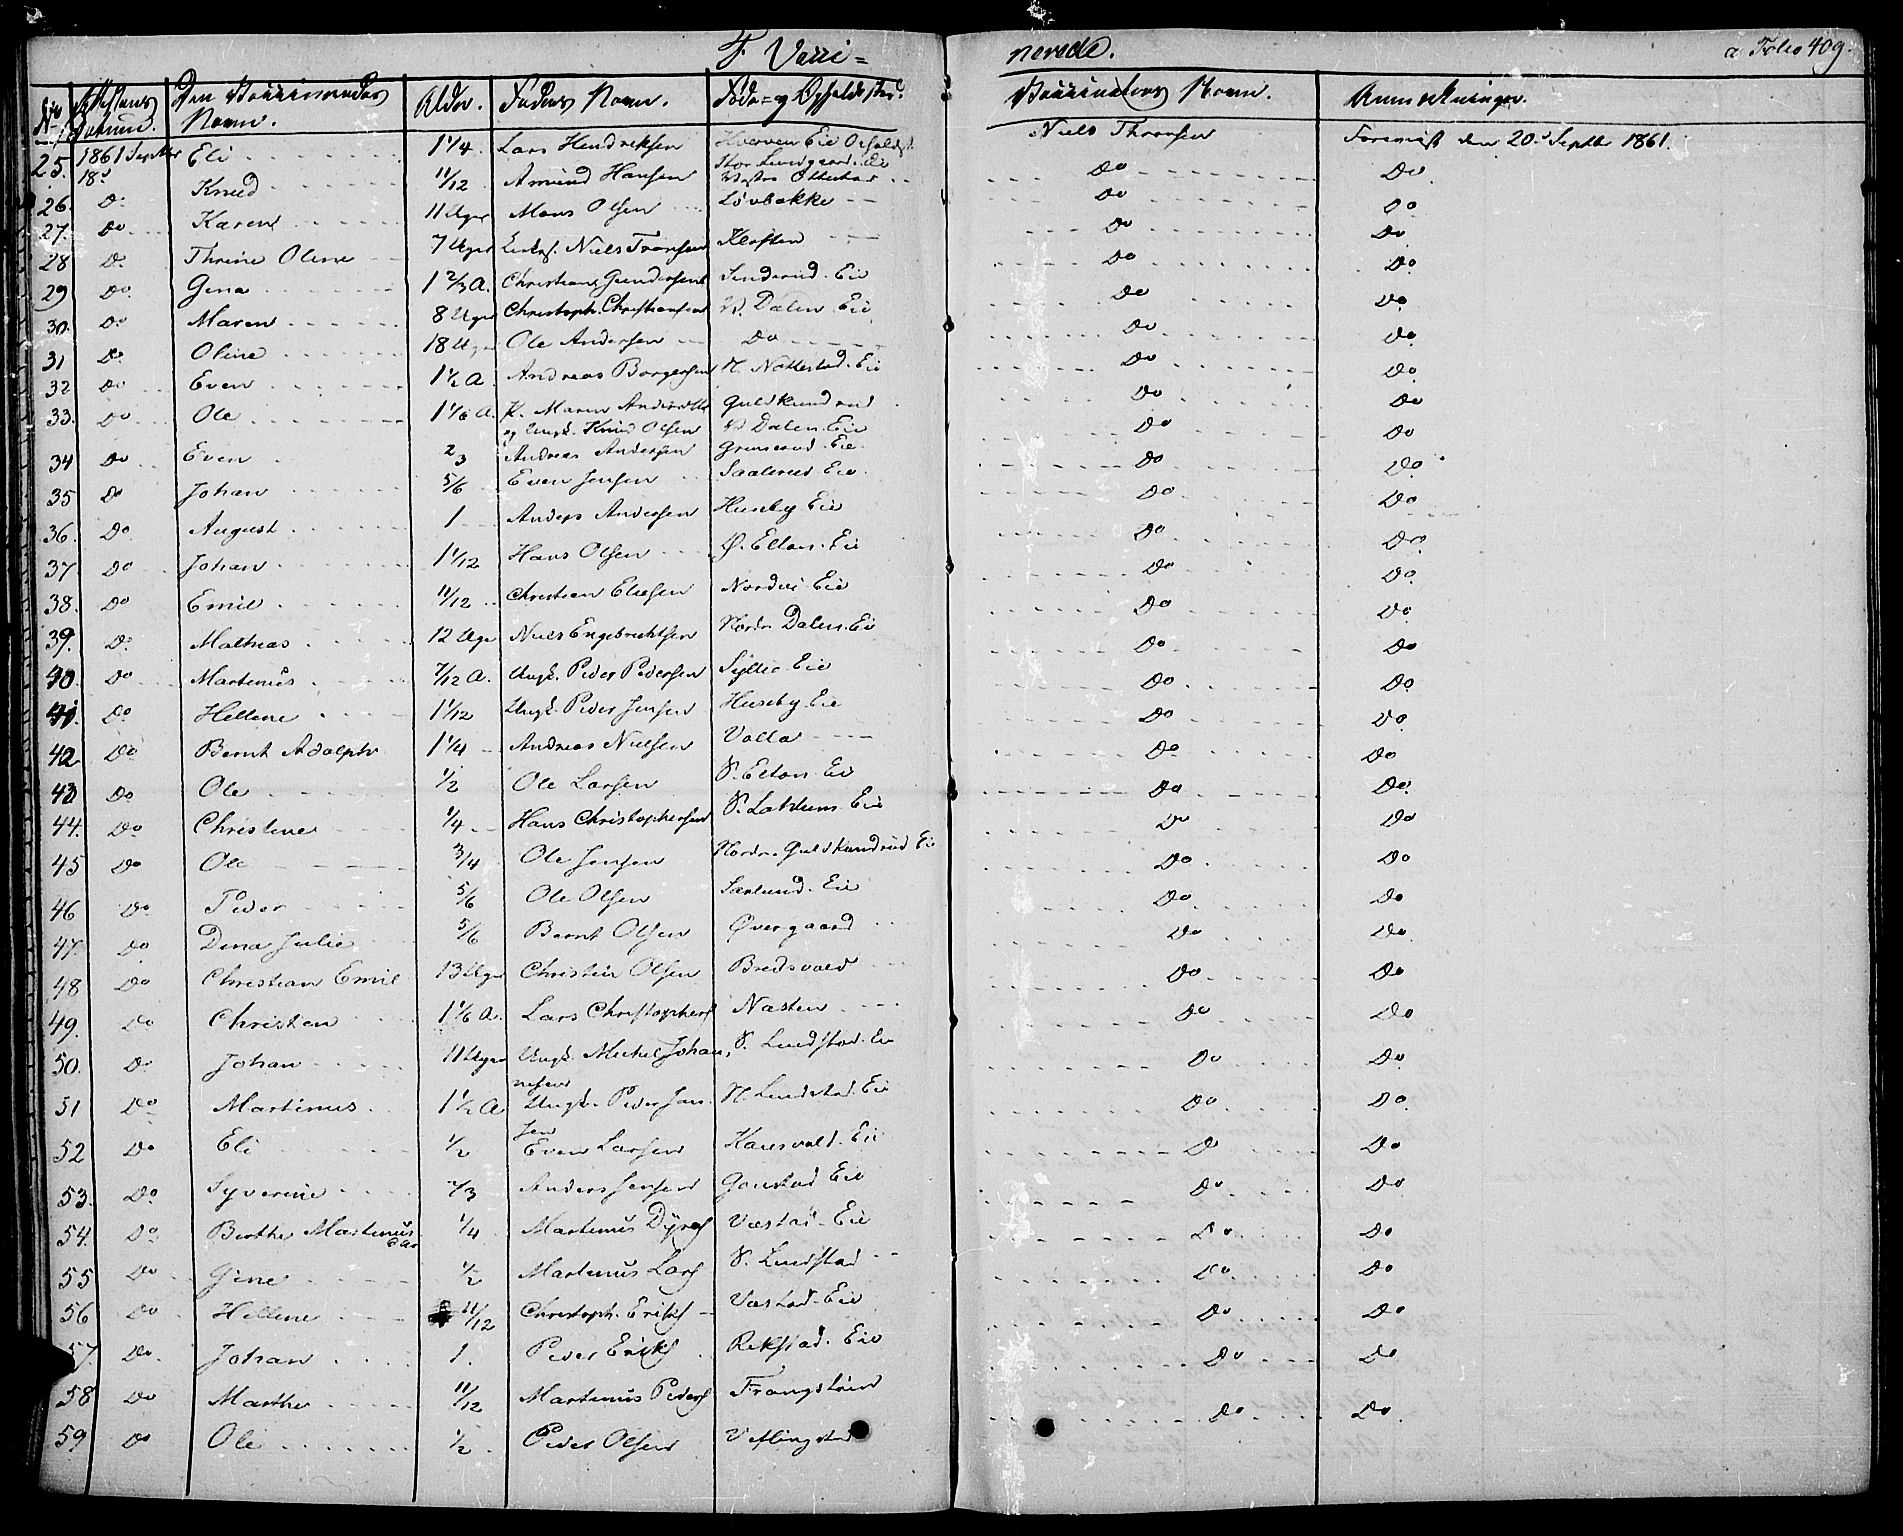 F. Vacci= nerede. a Folio 409.
No Attestens Datum. Den Vaccineredes Navn. Alder. Faders Navn. Føde= og Opholdsted. Vaccinateurs Navn. Anmærkninger.
25. 1861 Septbr 18d Eli 1 1/4 Lars Hendriksen Hverven Eie Niels Thronsen Foreviist den 20d Septbr 1861.
26. Do Knud 11/12 Amund Hansen Do Do
27. Do Karen 11 Uger Mons Olsen Løvbakke Do Do
28 Do Thrine Oline 7 Uger Niels Tronsen Kloften Do Do
29 Do Gina 1 2/3 A. Christian Gundersen Sinderud Eie Do Do
30. Do Maren 8 Uger Christoph. Christiansen N. Dalen Eie Do Do
31 Do Oline 18 Uger Ole Andersen Do Do Do
32 Do Even 1 1/2 A. Andreas Borgersen N. Nøttestad Eie Do Do
33. Do Ole 1 1/6 A. P. Maren Andersdtr Guldkundrud Do Do
og Ungk. Knud Olsen N. Dalen Eie
34 Do Even 2/3 Andreas Andersen Grimsrud Eie Do Do
35 Do Johan 5/6 Even Jensen Saalerud Eie Do Do
36. Do August 1 Anders Andersen Huseby Eie Do Do
37. Do Johan 1 1/12 Hans Olsen Ø. Elton Eie Do Do
38. Do Emil 11/12 Christian Eliesen Nordvi Eie Do Do
39. Do Mathias 12 Uger Niels Engebrechtsen Nordre Dalen Eie Do Do
40. Do Martinus 7/12 A. Ungk. Peder Pedersen Syllie Eie Do Do
41 Do Hellene 1 1/12 Ungk. Peder Jensen Huseby Eie Do Do
42 Do Bernt Adolph 1 1/4 Andreas Nielsen Volla Do Do
43 Do Ole 1/2 Ole Larsen N. Elton Eie Do Do
44. Do Christine 1/4 Hans Christophersen Eie Do Do
45 Do Ole 3/4 Ole Jensen Nordre Guldkundrud Eie Do Do
46 Do Peder 5/6 Ole Olsen Sørlund Eie Do Do
47. Do Dina Julie 5/6 Bernt Olsen Øvergaard Do Do
48 Do Christian Emil 13 Uger Christen Olsen Bredsvold Do Do
49. Do Christen 1 1/6 A. Lars Christophers Næsten Do Do
50. Do Johan 11 Uger Ungk. Michel Johan- S. Lundstad Eie Do Do
nesen
51 Do Martinus 1 1/2 A Ungk. Peder Jen- N. Lundstad Eie Do Do
sen
52 Do Eli 1/2 Even Larsen Hansvold Eie Do Do
53. Do Syverine 2/3 Anders Jensen Gaustad Eie Do Do
54. Do Berthe Martinus- 1/4 Martinus Dyres Væstad Eie Do Do
dtr
55 Do Gine 1/2 Martinus Lars S. Lundstad Do Do
56 Do Hellene 11/12 Christoph. Eriks Væstad Eie Do Do
57. Do Johan 1. Peder Eriks Rekstad Eie Do Do
58 Do Marthe 11/12 Martinus Peders Frangstøen Do Do
59 Do Ole 1/2 Peder Olsen Veflingstad